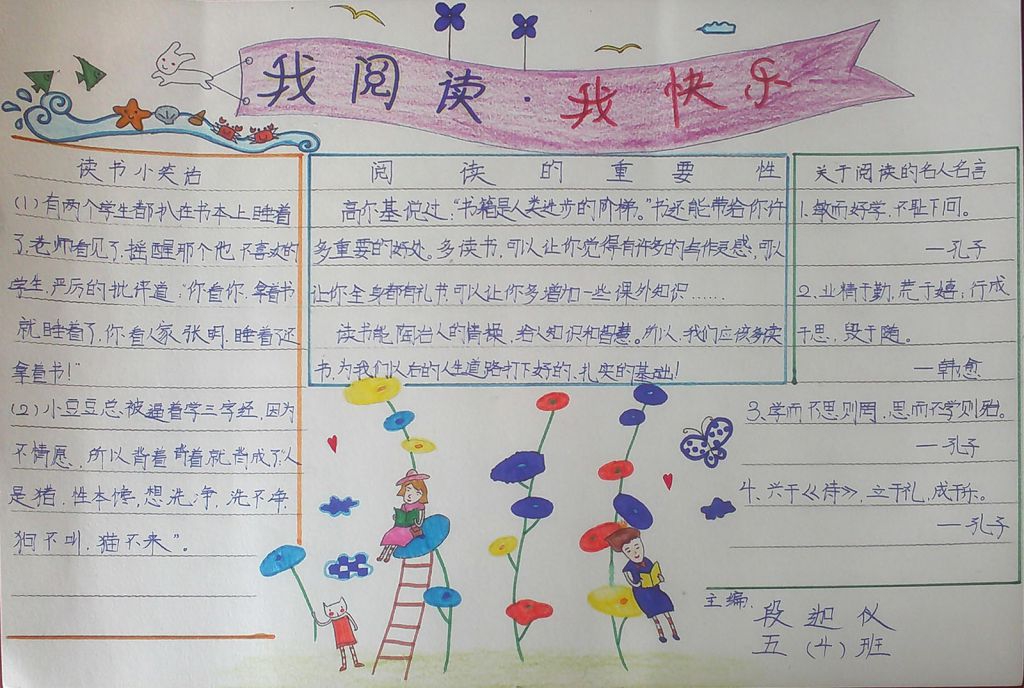 我阅读·我快乐
读书小笑话
(1)有两个学生都趴在书本上睡着
了,老师看见了,摇醒那个他不喜欢的
学生,严厉的批评道:“你看你,拿着书
就睡着了,你看人家张明,睡着了还
拿着书!”
(2)小豆豆总被逼着学三字经,因为
不情愿,所以背着背着就背成了“人
是猪,性本馋,想洗净,洗不净,
狗不叫,猫不来”。
阅读的重要性
高尔基说过:“书籍是人类进步的阶梯。”书还能带给你许
多重要的好处。多读书,可以让你觉得有许多的写作灵感,可以
让你全身都有礼节,可以让你多增加一些课外知识……
读书能陶冶人的情操,给人知识和智慧。所以,我们应该多读
书,为我们以后的人生道路打下好的、扎实的基础!
关于阅读的名人名言
1、敏而好学,不耻下问。
——孔子
2、业精于勤,荒于嬉;行成
于思,毁于随。
——韩愈
3、学而不思则罔,思而不学则殆。
——孔子
4、兴于《诗》,立于礼,成于乐。
——孔子
主编:段迦仪
五(4)班